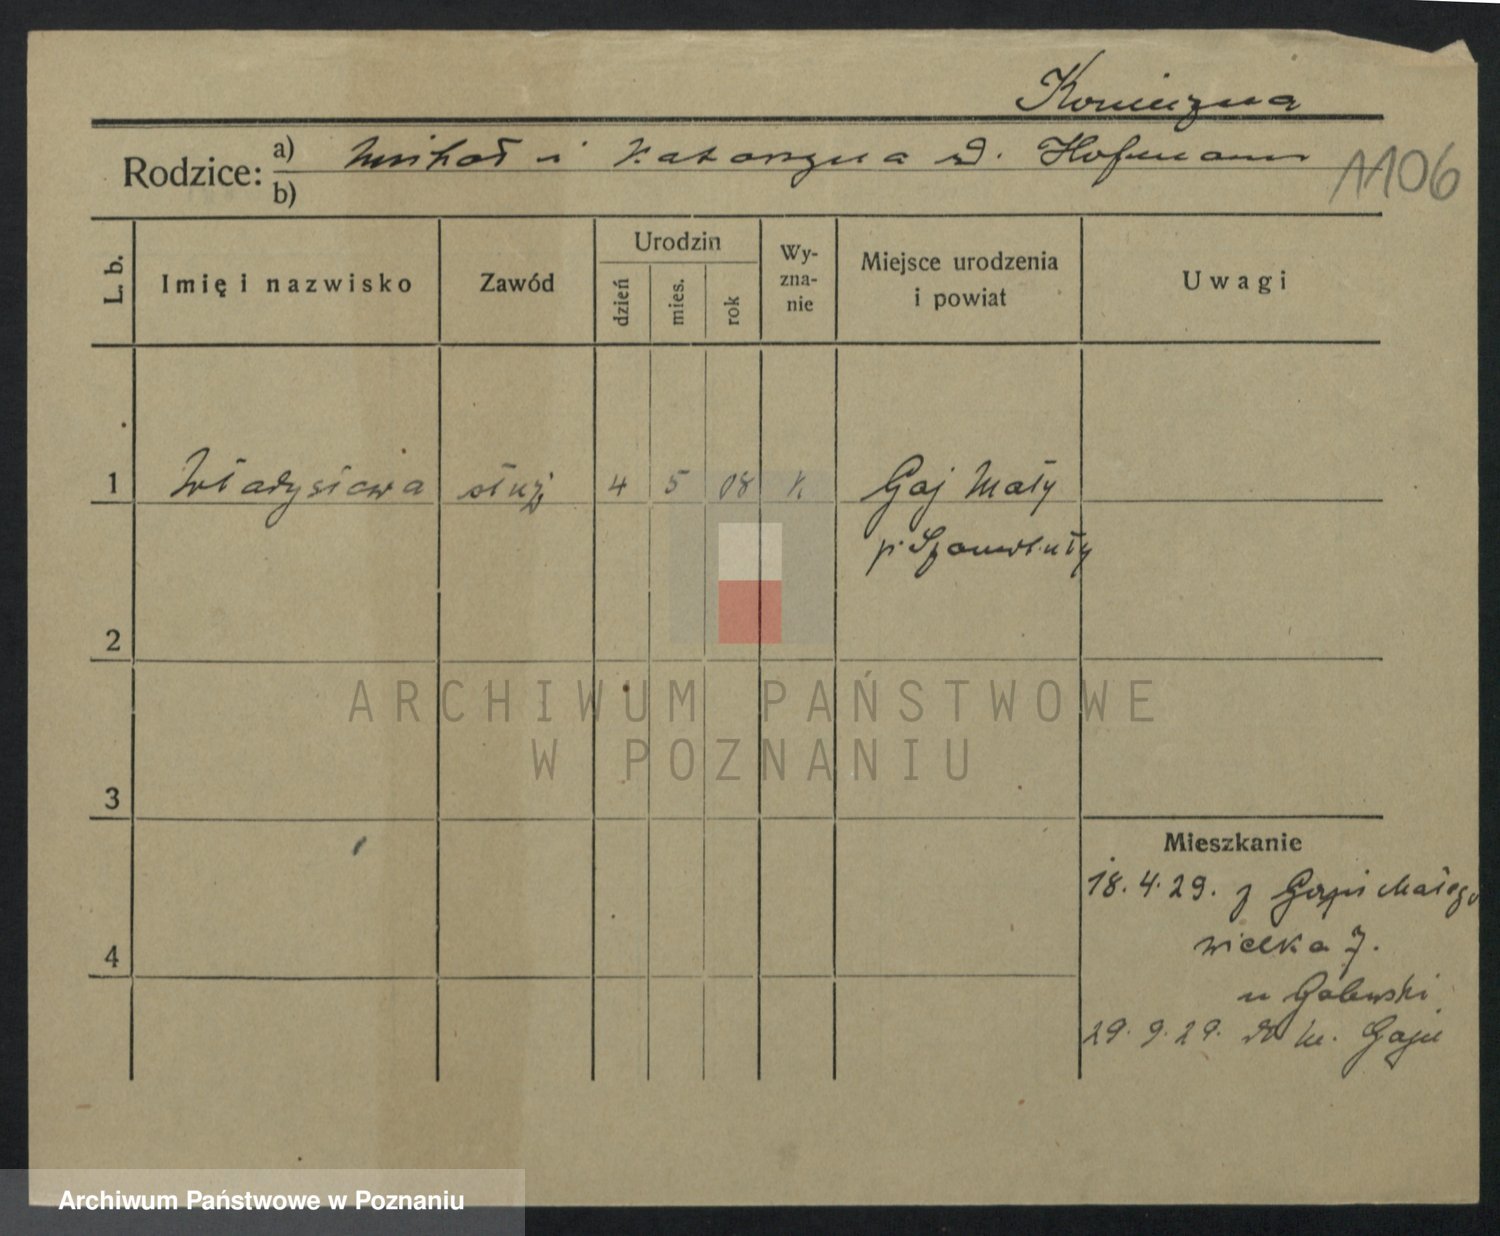 Konieczna
Rodzice: a) Michał i Katarzyna d. Hofmann
b)
1106
L. b.
Imię i nazwisko
Zawód
Urodzin
dzień
mies.
rok
Wy-
zna-
nie
Miejsce urodzenia
i powiat
Uwagi
1 Władysława służ. 4 5 08 k. Gaj Mały
p. Szamotuły
2
3
4
Mieszkanie
18. 4. 29. z Małego
wielka 7.
u Galewski
29. 9. 29. do M. Gaju
ARCHIWUM PAŃSTWOWE
W POZNANIU
Archiwum Państwowe w Poznaniu